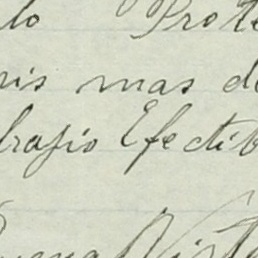 lo Prote
nis mas de
brajio Efectib
Buena Vista